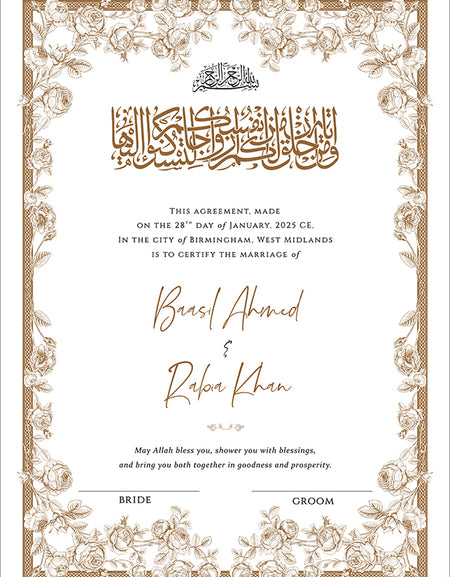 بسم الله الرحمن الرحيم
ومن آياته أن خلق لكم من أنفسكم أزواجا لتسكنوا إليها
THIS AGREEMENT, MADE
ON THE 28TH DAY of JANUARY, 2025 CE,
IN THE CITY of BIRMINGHAM, WEST MIDLANDS
IS TO CERTIFY THE MARRIAGE of
Baasil Ahmed
&
Rabia Khan
May Allah bless you, shower you with blessings,
and bring you both together in goodness and prosperity.
BRIDE GROOM